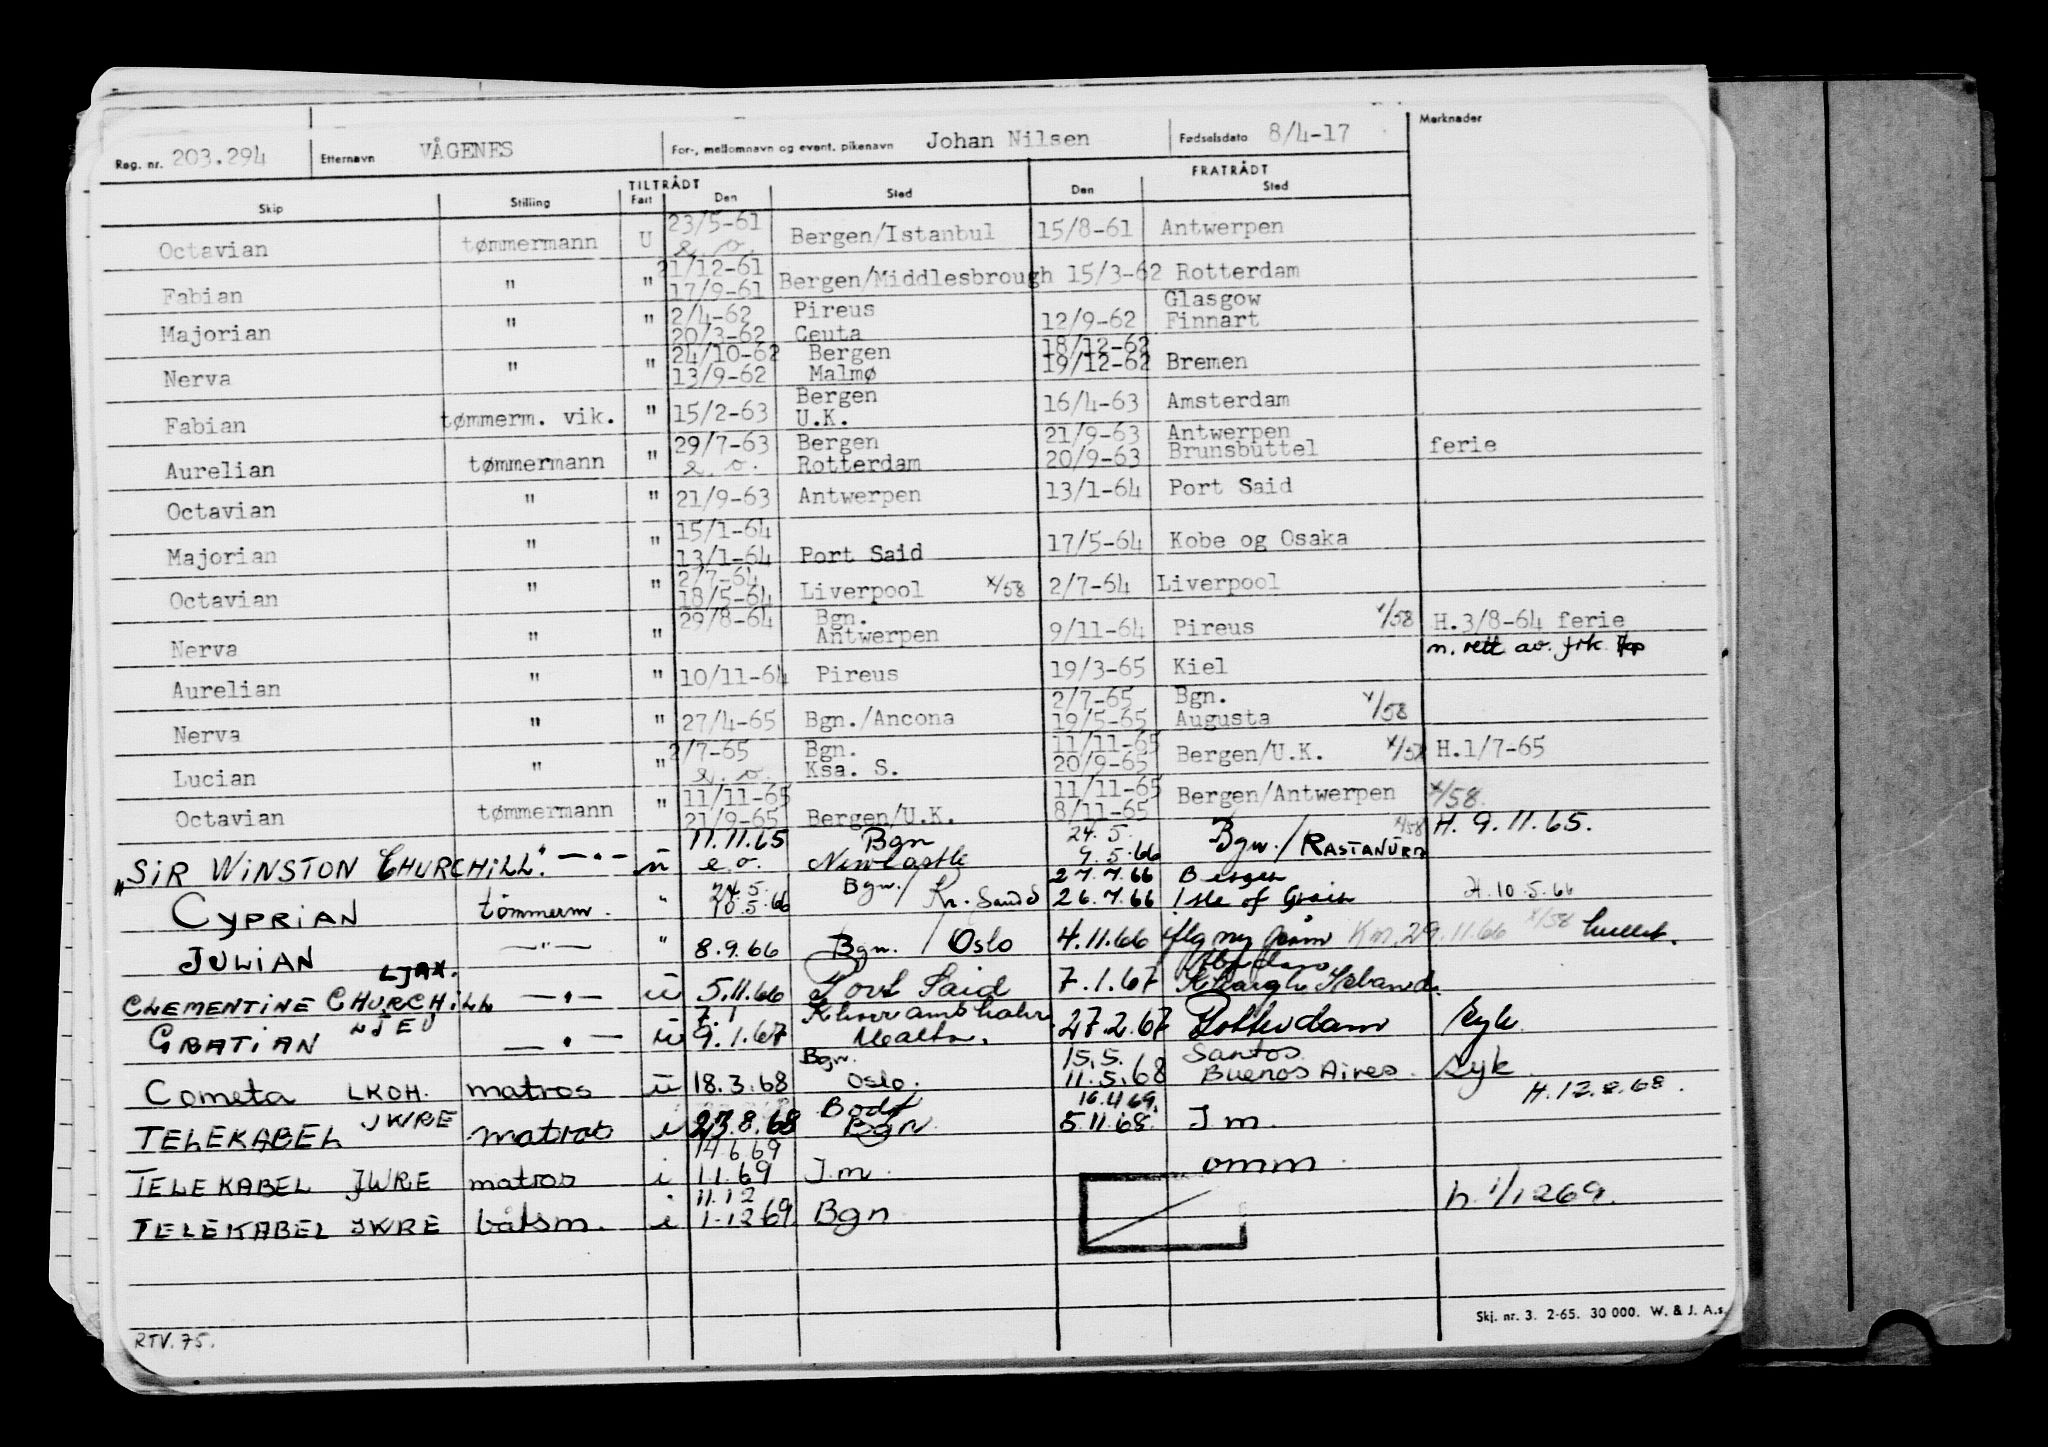 Reg. nr. 203.294 Etternavn VÅGENES For-, mellomnavn og event. pikenavn Johan Nilsen Fødselsdato 8/4-17 Merknader
TILTRÅDT FRATRÅDT
Skip Stilling Fart Den Sted Den Sted
23/5-61
Octavian tømmermann U e. o. Bergen/Istanbul 15/8-61 Antwerpen
21/12-61
Fabian " " 17/9-61 Bergen/Middlesbrough 15/3-62 Rotterdam
2/4-62 Pireus Glasgow
Majorian " " 20/3-62 Ceuta 12/9-62 Finnart
24/10-62 Bergen 18/12-62
Nerva " " 13/9-62 Malmø 19/12-62 Bremen
Bergen
Fabian tømmerm. vik. " 15/2-63 U.K. 16/4-63 Amsterdam
29/7-63 Bergen 21/9-63 Antwerpen
Aurelian tømmermann " e. o. Rotterdam 20/9-63 Brunsbuttel ferie
Octavian " " 21/9-63 Antwerpen 13/1-64 Port Said
15/1-64
Majorian " " 13/1-64 Port Said 17/5-64 Kobe og Osaka
2/7-64
Octavian " " 18/5-64 Liverpool x/58 2/7-64 Liverpool
29/8-64 Bgn.
Nerva " " Antwerpen 9/11-64 Pireus x/58 H.3/8-64 ferie
n. rett av. frk.
Aurelian " " 10/11-64 Pireus 19/3-65 Kiel
2/7-65 Bgn.
Nerva " " 27/4-65 Bgn./Ancona 19/5-65 Augusta x/58
2/7-65 Bgn. 11/11-65
Lucian " " e. o. Ksa. S. 20/9-65 Bergen/U.K. x/58 H.1/7-65
11/11-65 11/11-65
Octavian tømmermann " 21/9-65 Bergen/U.K. 8/11-65 Bergen/Antwerpen x/58
11.11.65 Bgn 24.5. x/58 H. 9.11.65.
"SIR WINSTON CHURCHILL" — " — u e.o. Newcastle 9.5.66 Bgn. / RASTANURA
24.5. Bgn. 27.7.66 Bergen
CYPRIAN tømmerm. " 10.5.66 / Kr. Sand S 26.7.66 Isle of Grain H. 10.5.66
JULIAN — " — " 8.9.66 Bgn. / Oslo 4.11.66 x/58
LJAX. Abadan
CLEMENTINE CHURCHILL — " — u 5.11.66 Port Said 7.1.67 Kharg Island.
LJEU 7.1 Khorramshahr
GRATIAN — " — u 9.1.67 Malta. 27.2.67 Rotterdam syk
Bgn. 15.5. Santos
Cometa LKOH. matros u 18.3.68 Oslo. 11.5.68 Buenos Aires. syk
Bodø 16.4 69. H. 12.8.68.
TELEKABEL JWRE matros i 23.8.68 Bgn 5.11.68. I m.
14.6.69
TELEKABEL JWRE matros i 1.1.69 I.m. omm.
11.12
TELEKABEL JWRE båtsm. i 1.12 69 Bgn h. 1/12 69.
Skj. nr. 3. 2-65. 30 000. W. & J. A.s.
RTV. 75.